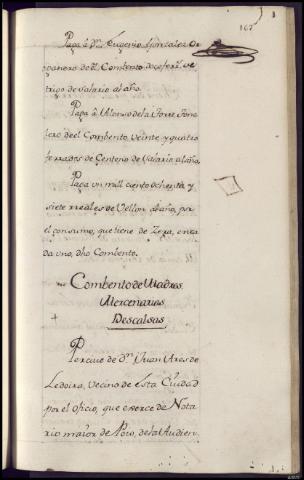 167
Paga â Dn. Eugenio Gonzalez Or
ganero de dho Combento doze ferrs. de
trigo de salario al año.
Paga â Alonso de la Torre Tone
lero de el Combento, veinte y quatro
ferrados de Centeno de Salario al año,
Paga un mill ciento ochenta y
siete rreales de Vellon al año, por
el consumo, que tiene de Zera, en ca
da uno, dho Combento.
Combento de Madres
Mercenarias
Descalsas
Perciue de Dn. Juan Ares de
Ledoira, Vecino de esta Ciudad
por el oficio, que exerce de Nota
rio maior de Poio, de la Audien